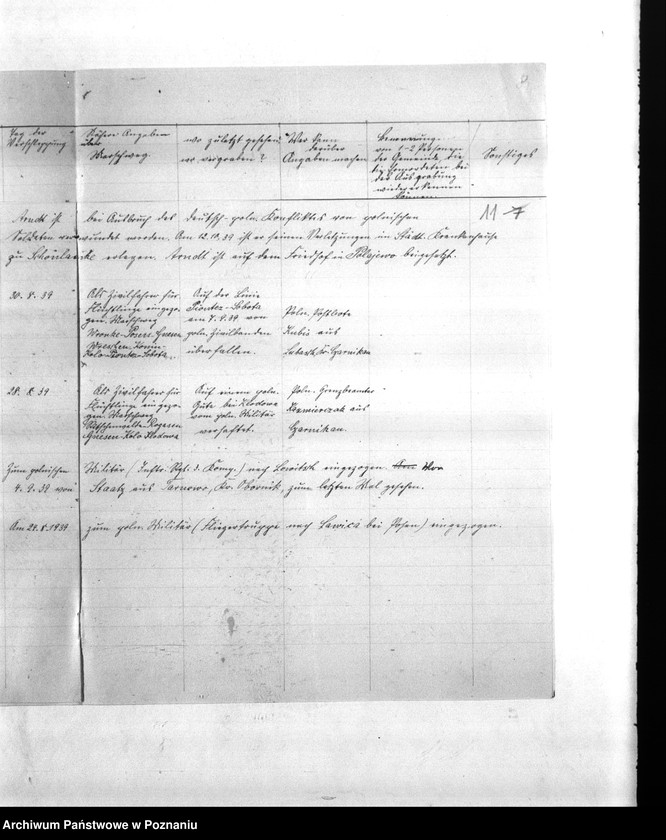 Tag der
Verschleppung
Nähere Angaben
über
Marschweg.
wo zuletzt gesehen
wo vergraben?
Wer kann
darüber
Angaben machen
Benennung
von 1-2 Personen
der Gemeinde, die
die Ermordeten bei
der Ausgrabung
wiedererkennen
können.
Sonstiges
11
Arndt ist bei Ausbruch des deutsch-poln. Konfliktes von polnischen
Soldaten verwundet worden. Am 12.10.39 ist er seinen Verletzungen im Städt. Krankenhause
zu Schönlanke erlegen. Arndt ist auf dem Friedhof in Polajewo beigesetzt.
30.8.39
Als Zivilfahrer für
Flüchtlinge eingezo-
gen. Marschweg
Wronke-Posen-Gnesen
Wreschen, Konin-
Kolo-Piontec-Sobota.
Auf der Linie
Piontec-Sobota
am 7.9.39 von
poln. Zivilbanden
überfallen.
Poln. Postbote
Kubis aus
Lubasch, Kr. Czarnikau
28.8.39
Als Zivilfahrer für
Flüchtlinge eingezo-
gen. Marschweg
Rogasen
Gnesen-Kolo-Klodawa
Auf einem poln.
Gute bei Klodawa
vom poln. Militär
verhaftet.
Poln. Grenzbeamter
Kazmierczak aus
Czarnikau.
Zum polnischen Militär (Inftr. Rgt. d. Komp.) nach Lowitsch eingezogen.
4.9.39 von Staatz aus Tarnowo, Kr. Obornik, zum letzten Mal gesehen.
Am 24.8.1939 zum poln. Militär (Fliegertruppe nach Lawica bei Posen) eingezogen.
Archiwum Państwowe w Poznaniu